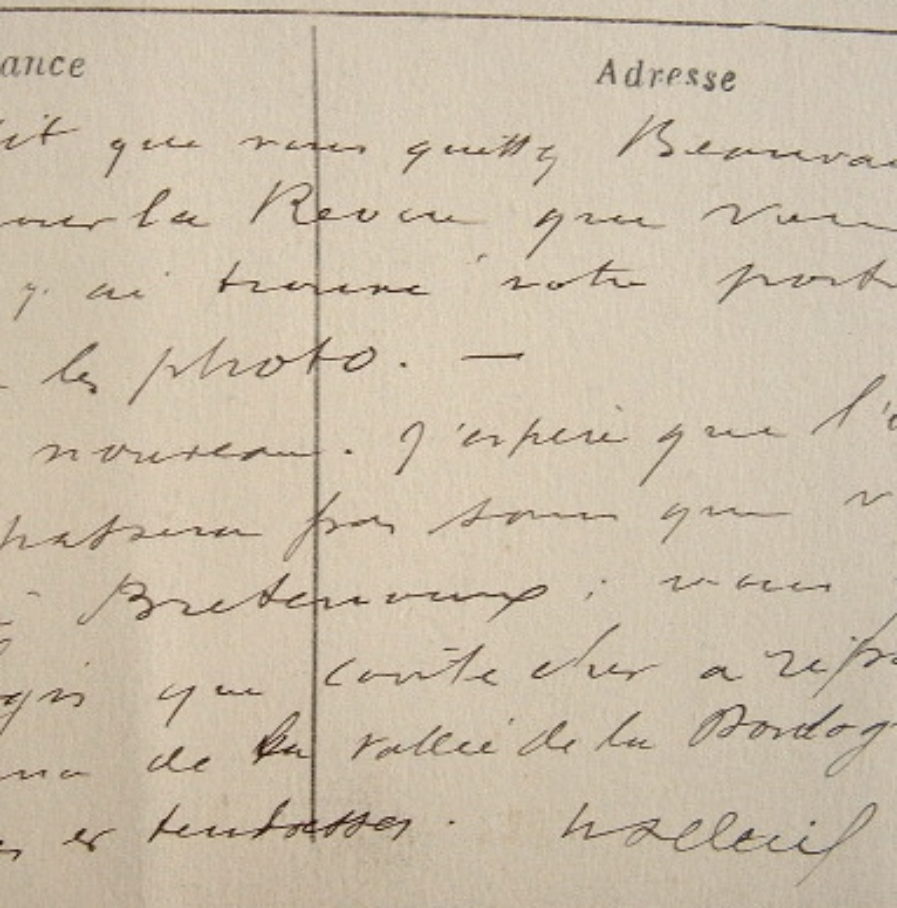 ance Adresse
it que vous quittez Beauvai
la Revue que vou
y ai trouvé votre port
les photo. —
nouveau. J'espère que l'é
passera pas sans que v
à Bretenoux ; vous
que coûte cher a répa
de la vallée de la Dordog
et tendresses.